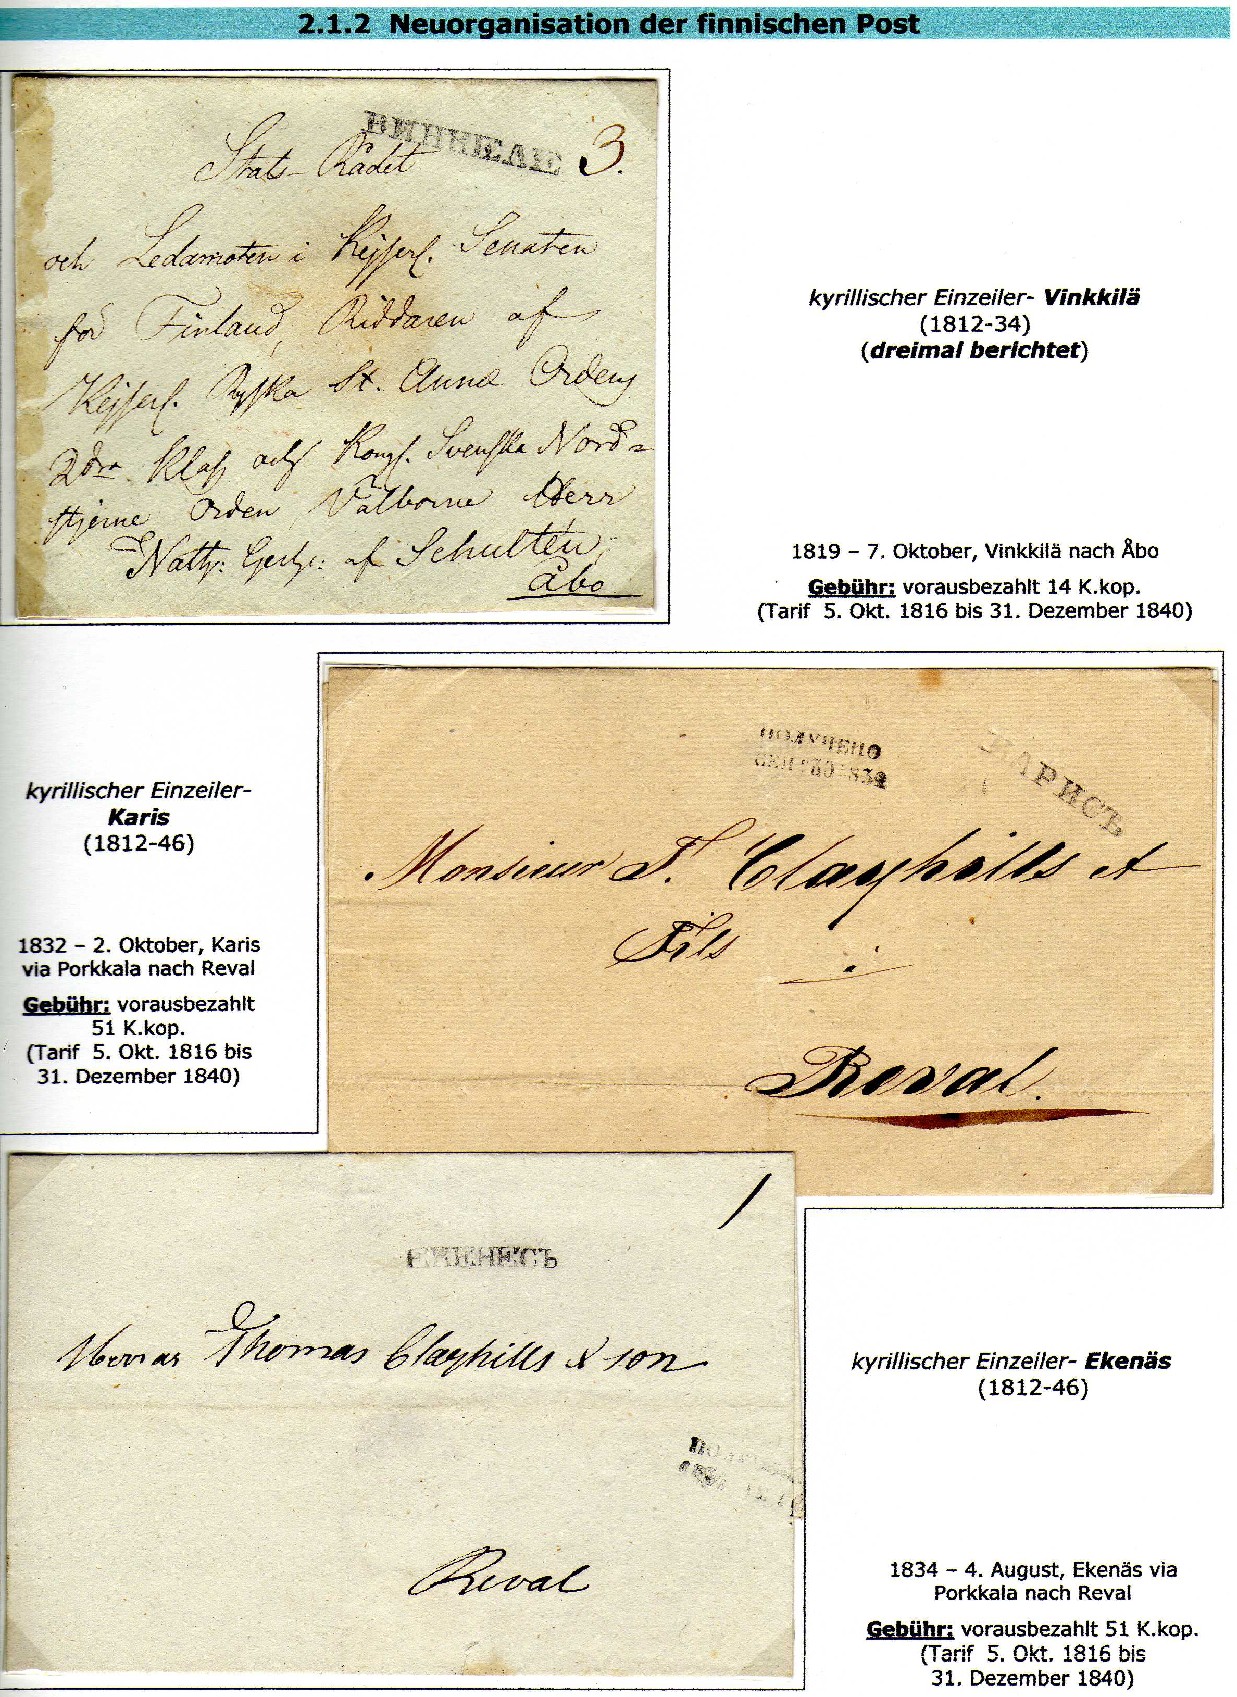 2.1.2 Neuorganisation der finnischen Post
ВИННЕЛЕ 3.
Stats-Rådet
och Ledamoten i Kejserl. Senaten
för Finland, Riddaren af
Kejserl. Ryska St. Annæ Ordens
2dra Klass och Kongl. Svenska Nord=
stjerne Orden, Välborne Herr
af Schultén,
Åbo
kyrillischer Einzeiler- Vinkkilä
(1812-34)
(dreimal berichtet)
1819 – 7. Oktober, Vinkkilä nach Åbo
Gebühr: vorausbezahlt 14 K.kop.
(Tarif 5. Okt. 1816 bis 31. Dezember 1840)
kyrillischer Einzeiler-
Karis
(1812-46)
1832 – 2. Oktober, Karis
via Porkkala nach Reval
Gebühr: vorausbezahlt
51 K.kop.
(Tarif 5. Okt. 1816 bis
31. Dezember 1840)
ПОЛУЧЕНО
КАРИСЪ
Monsieur T. Clayhills et
Fils
Reval.
1
ЕКЕНЕСЪ
Herrar Thomas Clayhills & son
Reval
kyrillischer Einzeiler- Ekenäs
(1812-46)
1834 – 4. August, Ekenäs via
Porkkala nach Reval
Gebühr: vorausbezahlt 51 K.kop.
(Tarif 5. Okt. 1816 bis
31. Dezember 1840)